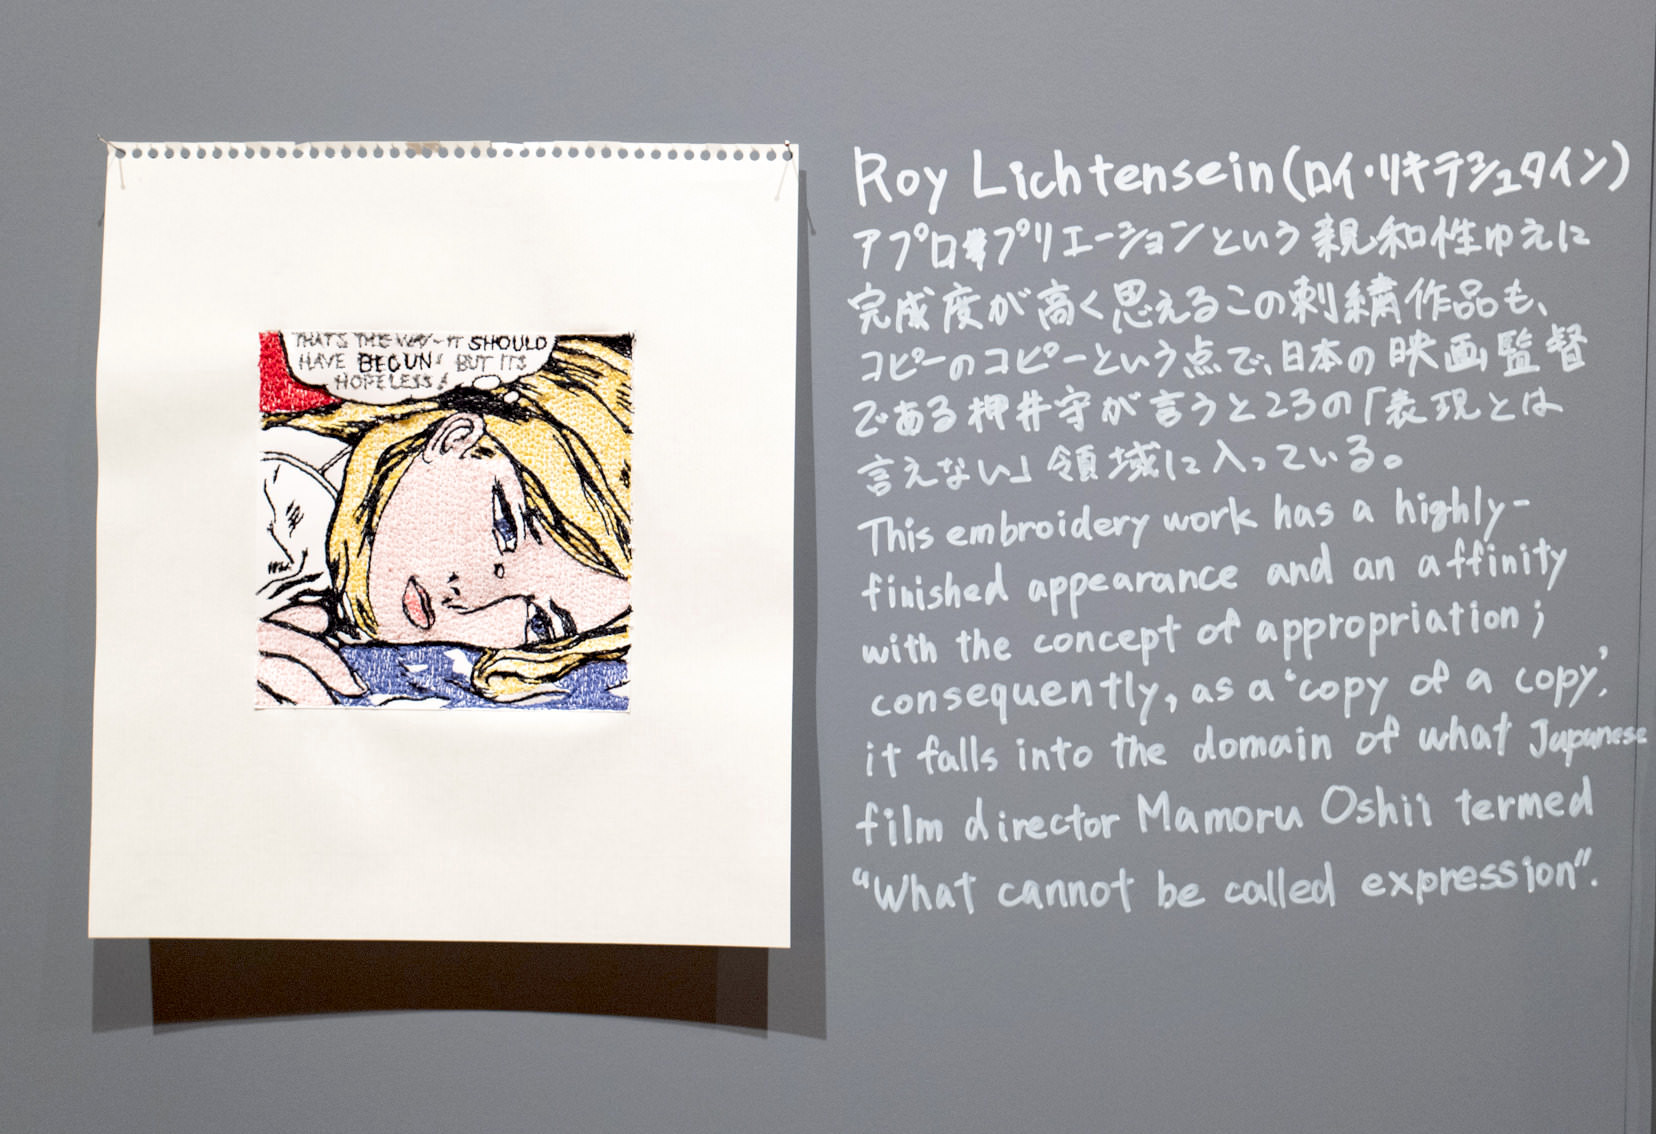 THAT'S THE WAY--IT SHOULD
HAVE BEGUN! BUT IT'S
HOPELESS!
Roy Lichtensein(ロイ・リキテシュタイン)
アプロプリエーションという親和性ゆえに
完成度が高く思えるこの刺繍作品も、
コピーのコピーという点で、日本の映画監督
である押井守が言うと23の「表現とは
言えない」領域に入っている。
This embroidery work has a highly-
finished appearance and an affinity
with the concept of appropriation;
consequently, as a 'copy of a copy',
it falls into the domain of what Japanese
film director Mamoru Oshii termed
"What cannot be called expression".